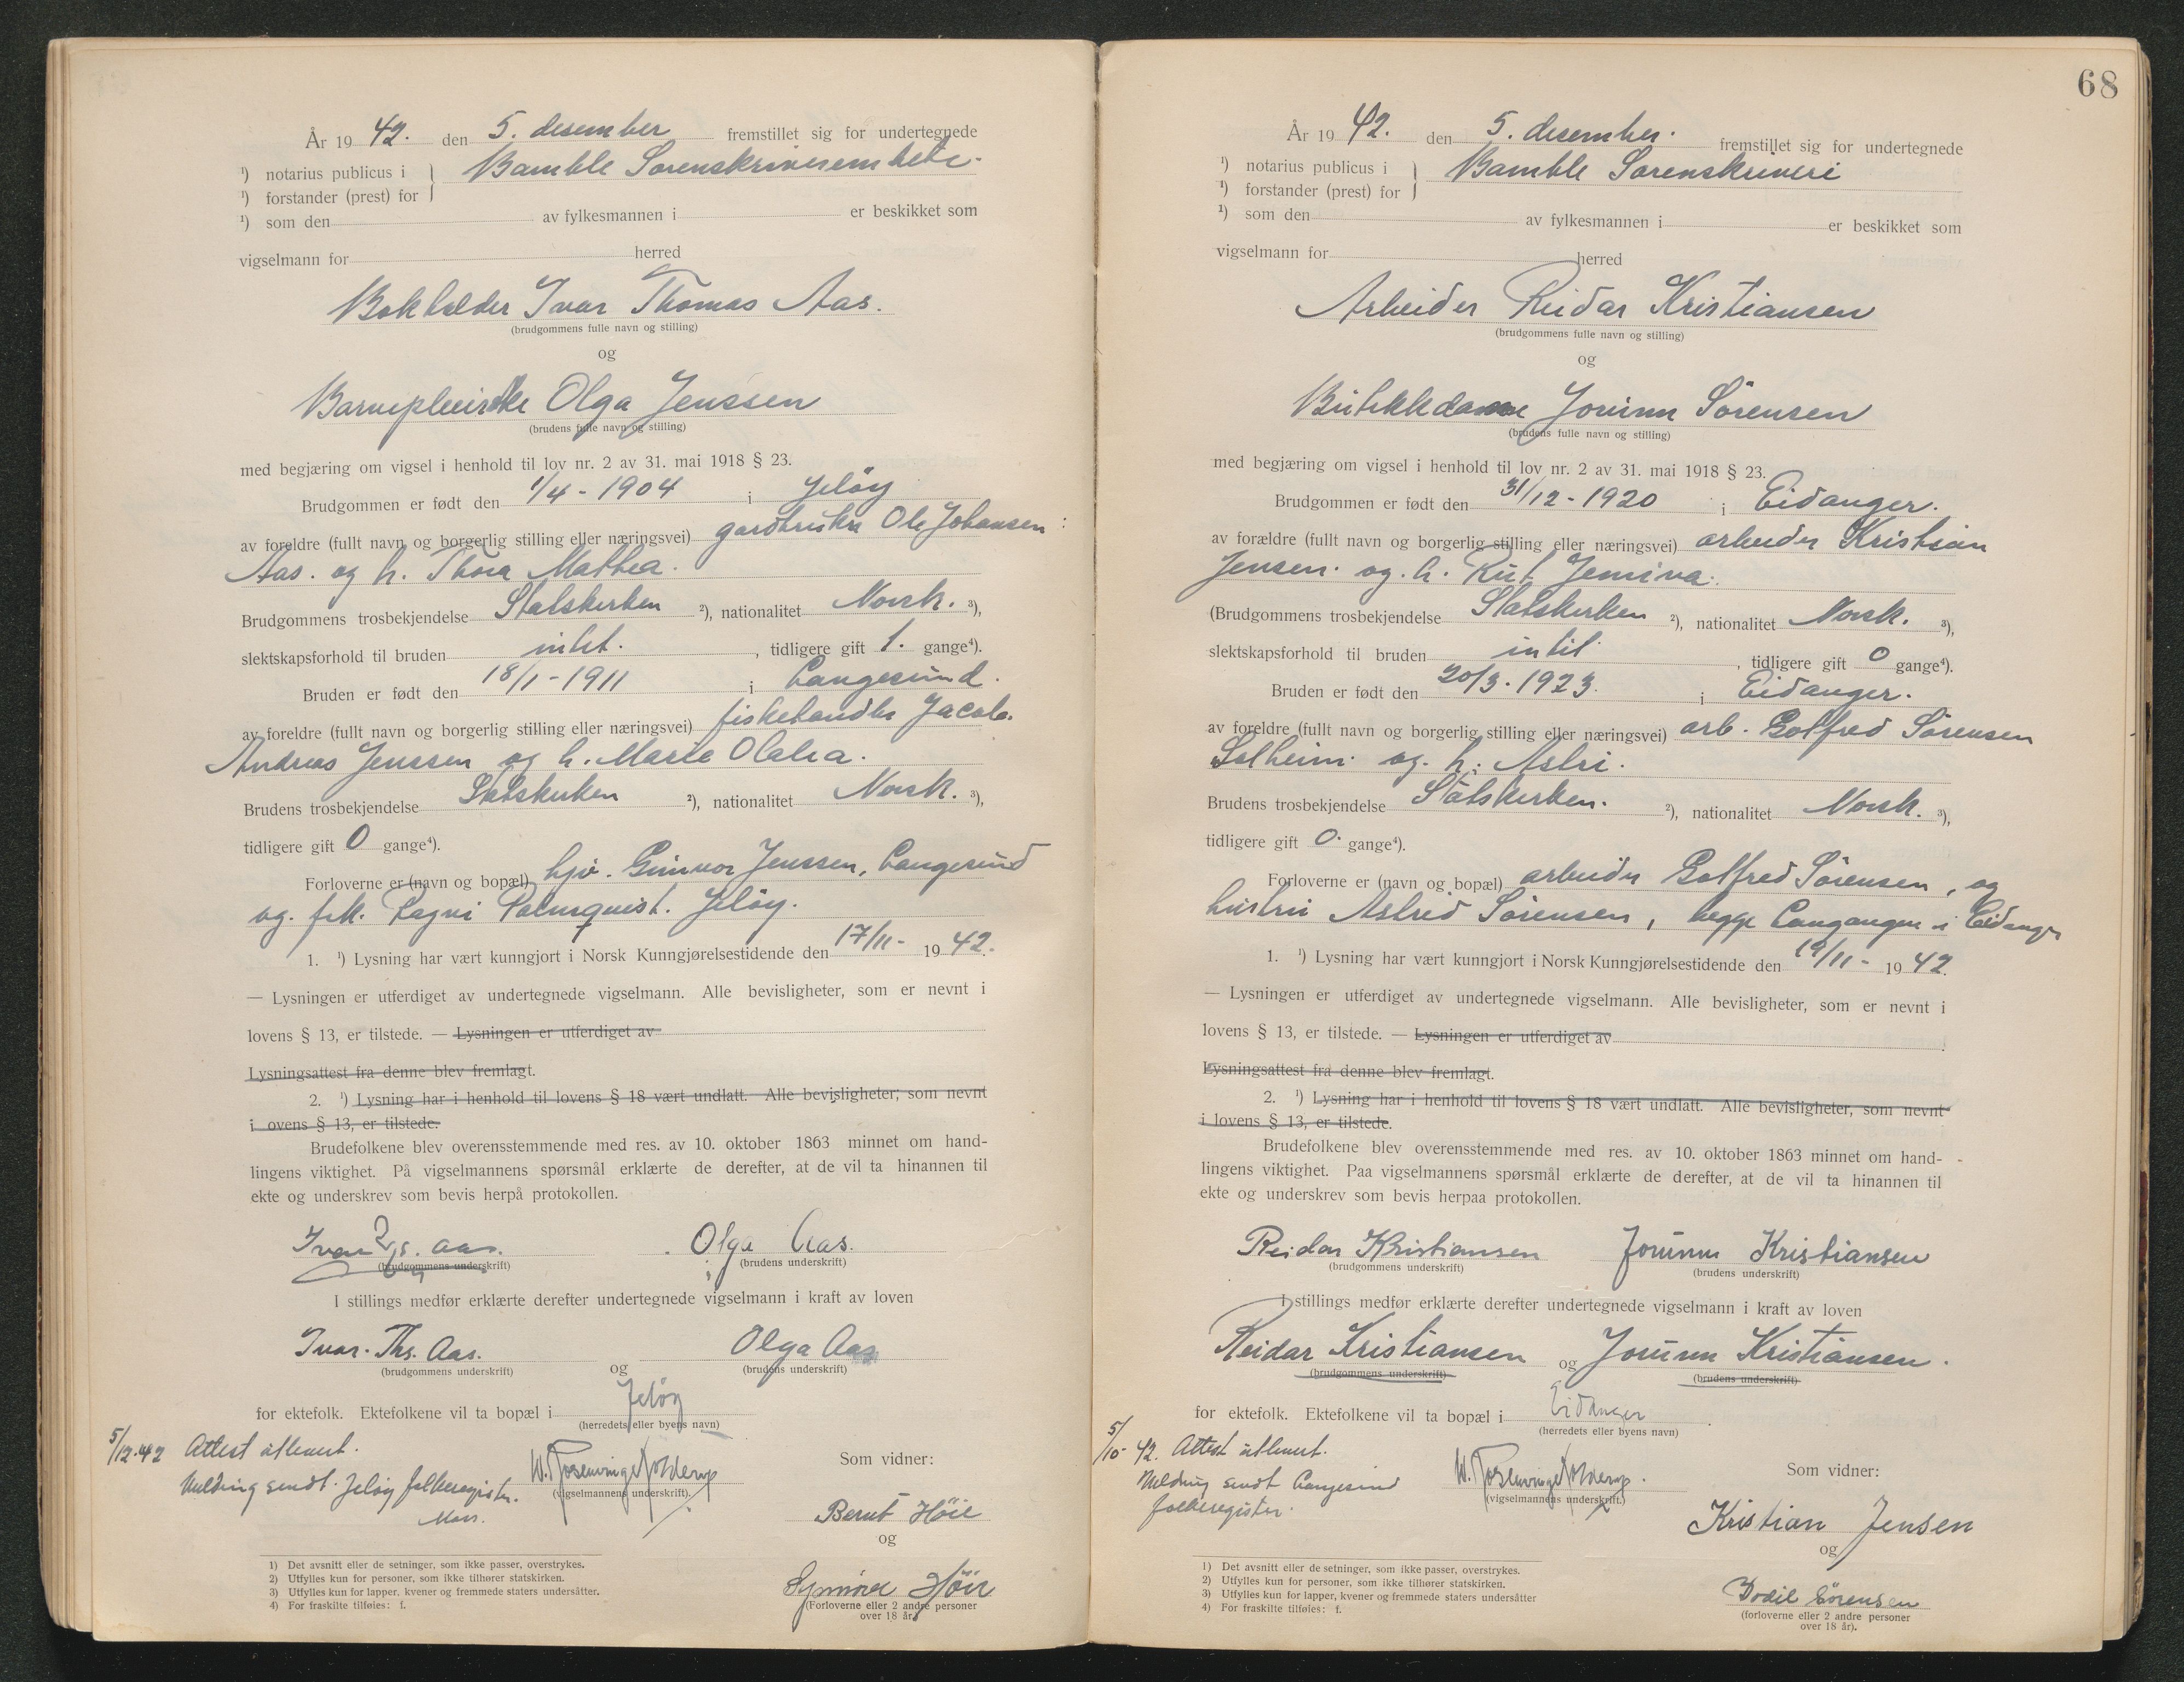 År 19 42. den 5. desember fremstillet sig for undertegnede
¹) notarius publicus i } Bamble Sorenskriverembete.
¹) forstander (prest) for
¹) som den av fylkesmannen i er beskikket som
vigselmann for herred
Bokholder Ivar Thomas Aas.
(brudgommens fulle navn og stilling)
og
Barnepleierske Olga Jenssen
(brudens fulle navn og stilling)
med begjæring om vigsel i henhold til lov nr. 2 av 31. mai 1918 § 23.
Brudgommen er født den 1/4 - 1904 i Jeløy
av foreldre (fullt navn og borgerlig stilling eller næringsvei) gardbruker Ole Johansen
Aas. og h. Thora Mathea.
Brudgommens trosbekjendelse Statskirken ²), nationalitet Norsk. ³),
slektskapsforhold til bruden intet. , tidligere gift 1. gange⁴).
Bruden er født den 18/1 - 1911 i Langesund.
av foreldre (fullt navn og borgerlig stilling eller næringsvei) fiskehandler Jacob
Andreas Jenssen og h. Marie Olalea.
Brudens trosbekjendelse Statskirken ²), nationalitet Norsk. ³),
tidligere gift 0 gange⁴).
Forloverne er (navn og bopæl) hjv. Gunvor Jenssen, Langesund
og. frk. Ragni Palmquist. Jeløy.
1. ¹) Lysning har vært kunngjort i Norsk Kunngjørelsestidende den 17/11 - 19 42.
— Lysningen er utferdiget av undertegnede vigselmann. Alle bevisligheter, som er nevnt i
lovens § 13, er tilstede. — Lysningen er utferdiget av
Lysningsattest fra denne blev fremlagt.
2. ¹) Lysning har i henhold til lovens § 18 vært undlatt. Alle bevisligheter, som nevnt
i ovens § 13, er tilstede.
Brudefolkene blev overensstemmende med res. av 10. oktober 1863 minnet om hand-
lingens viktighet. På vigselmannens spørsmål erklærte de derefter, at de vil ta hinannen til
ekte og underskrev som bevis herpå protokollen.
Ivar Ths. Aas. Olga Aas.
(brudgommens underskrift) (brudens underskrift)
I stillings medfør erklærte derefter undertegnede vigselmann i kraft av loven
Ivar. Ths. Aas. og Olga Aas
(brudgommens underskrift) (brudens underskrift)
for ektefolk. Ektefolkene vil ta bopæl i Jeløy
(herredets eller byens navn)
5/12.42 Attest utlevert.
Melding sendt. Jeløy folkeregister.
Moss.
W. Rosenvinge Kolderup
(vigselmannens underskrift)
Som vidner:
Bernt Höie
og
Synnöve Höie
(Forloverne eller 2 andre personer
over 18 år)
1) Det avsnitt eller de setninger, som ikke passer, overstrykes.
2) Utfylles kun for personer, som ikke tilhører statskirken.
3) Utfylles kun for lapper, kvener og fremmede staters undersåtter.
4) For fraskilte tilføies: f.
68
År 19 42. den 5. desember. fremstillet sig for undertegnede
¹) notarius publicus i } Bamble Sorenskriveri
¹) forstander (prest) for
¹) som den av fylkesmannen i er beskikket som
vigselmann for herred
Arbeider Reidar Kristiansen
(brudgommens fulle navn og stilling)
og
Butikkdame Jorunn Sörensen
(brudens fulle navn og stilling)
med begjæring om vigsel i henhold til lov nr. 2 av 31. mai 1918 § 23.
Brudgommen er født den 31/12 - 1920 i Eidanger.
av forældre (fullt navn og borgerlig stilling eller næringsvei) arbeider Kristian
Jensen. og. h. Rut Jemina.
(Brudgommens trosbekjendelse Statskirken ²), nationalitet Norsk. ³),
slektskapsforhold til bruden intet , tidligere gift 0 gange⁴).
Bruden er født den 20/3 - 1923. i Eidanger.
av foreldre (fullt navn og borgerlig stilling eller næringsvei) arb. Golfred Sörensen
Solheim. og. h. Astri.
Brudens trosbekjendelse Statskirken. ²), nationalitet Norsk. ³),
tidligere gift 0. gange⁴).
Forloverne er (navn og bopæl) arbeider Golfred Sörensen, og
hustru Astrid Sörensen, begge Langangen i Eidanger
1. ¹) Lysning har vært kunngjort i Norsk Kunngjørelsestidende den 19/11 - 19 42.
— Lysningen er utferdiget av undertegnede vigselmann. Alle bevisligheter, som er nevnt i
lovens § 13, er tilstede. — Lysningen er utferdiget av
Lysningsattest fra denne blev fremlagt.
2. ¹) Lysning har i henhold til lovens § 18 vært undlatt. Alle bevisligheter, som nevnt
i lovens § 13, er tilstede.
Brudefolkene blev overensstemmende med res. av 10. oktober 1863 minnet om hand-
lingens viktighet. Paa vigselmannens spørsmål erklærte de derefter, at de vil ta hinannen til
ekte og underskrev som bevis herpaa protokollen.
Reidar Kristiansen Jorunn Kristiansen
(brudgommens underskrift) (brudens underskrift)
I stillings medfør erklærte derefter undertegnede vigselmann i kraft av loven
Reidar Kristiansen og Jorunn Kristiansen.
(brudgommens underskrift) (brudens underskrift)
for ektefolk. Ektefolkene vil ta bopæl i Eidanger
(herredets eller byens navn)
5/10- 42. Attest utlevert.
Melding sendt Langesund
folkeregister.
W. Rosenvinge Kolderup.
(vigselmannens underskrift.)
Som vidner:
Kristian Jensen
og
Bodil Sörensen
(forloverne eller 2 andre personer
over 18 år).
1) Det avsnitt eller de setninger, som ikke passer, overstrykes.
2) Utfylles kun for personer, som ikke tilhører statskirken.
3) Utfylles kun for lapper, kvener og fremmede staters undersåtter
4) For fraskilte tilføies: f.